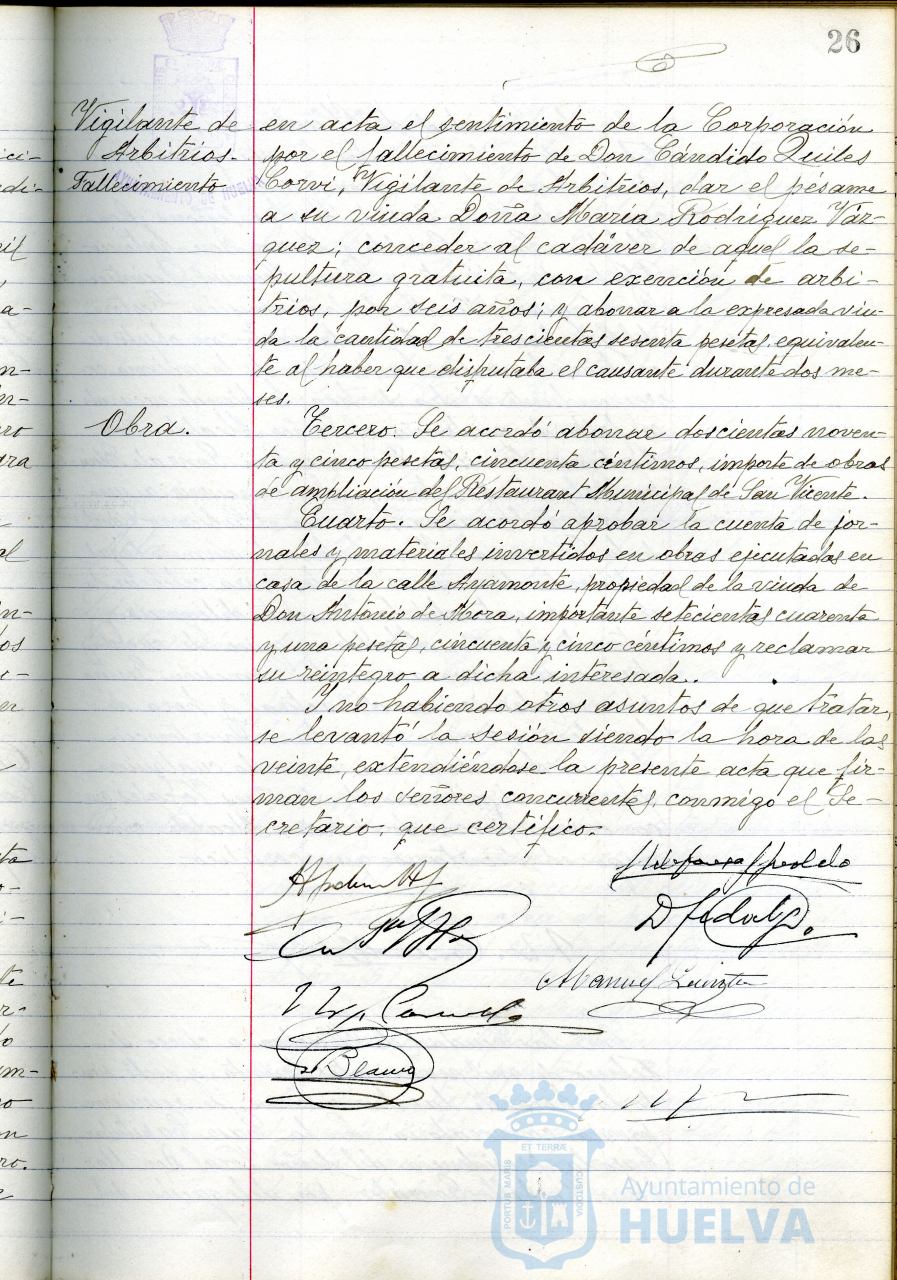 26
Vigilante de
Arbitrios.
Fallecimiento
en acta el sentimiento de la Corporación
por el fallecimiento de Don Cándido Quiles
Corvi, Vigilante de Arbitrios, dar el pésame
a su viuda Doña María Rodríguez Váz-
quez; conceder al cadáver de aquel la se-
pultura gratuita, con exención de arbi-
trios, por seis años; y abonar a la expresada viu-
da la cantidad de trescientas sesenta pesetas, equivalen-
te al haber que disfrutaba el causante durante dos me-
ses.
Obra.
Tercero. Se acordó abonar doscientas noven-
ta y cinco pesetas, cincuenta céntimos, importe de obras
de ampliación del Restaurant Municipal de San Vicente.
Cuarto. Se acordó aprobar la cuenta de jor-
nales y materiales invertidos en obras ejecutadas en
casa de la calle Ayamonte, propiedad de la viuda de
Don Antonio de Mora, importante setecientas cuarenta
y una pesetas, cincuenta y cinco céntimos y reclamar
su reintegro a dicha interesada.
Y no habiendo otros asuntos de que tratar,
se levantó la sesión siendo la hora de las
veinte, extendiéndose la presente acta que fir-
man los señores concurrentes, conmigo el Se-
cretario, que certifico.
Manuel
Blanco
PORTUS MARIS ET TERRÆ CUSTODIA
Ayuntamiento de
HUELVA